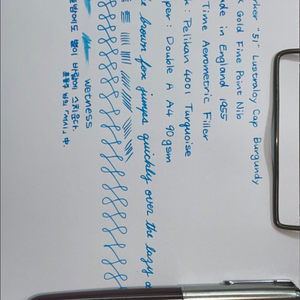 ker "51" Lustraloy Cap Burgundy
K Gold Fine Point Nib
de in England 1985
Time Aerometric Filler
k : Pelikan 4001 Turquoise
per : Double A A4 90gsm
brown fox jumps quickly over the lazy d
wetness
바람에 스치운다.